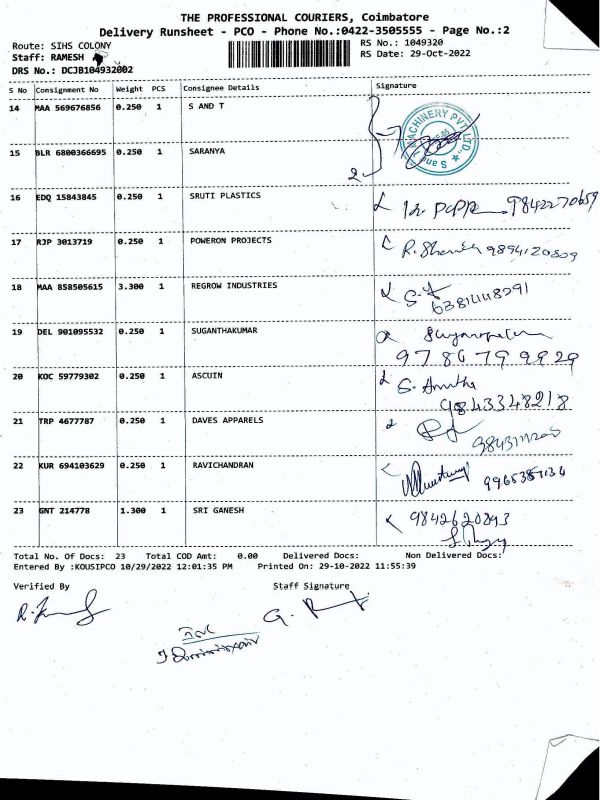 THE PROFESSIONAL COURIERS, Coimbatore
Delivery Runsheet - PCO - Phone No.:0422-3505555 - Page No.:2
Route: SIHS COLONY RS No.: 1049320
Staff: RAMESH RS Date: 29-Oct-2022
DRS No.: DCJB104932002
S No Consignment No Weight PCS Consignee Details Signature
14 MAA 569676856 0.250 1 S AND T
MACHINERY PVT. LTD. S and T
15 BLR 6800366695 0.250 1 SARANYA
2
16 EDQ 15843845 0.250 1 SRUTI PLASTICS
9842270659
17 RJP 3013719 0.250 1 POWERON PROJECTS
9894120809
18 MAA 858505615 3.300 1 REGROW INDUSTRIES
19 DEL 901095532 0.250 1 SUGANTHAKUMAR
97867 99929
20 KOC 59779302 0.250 1 ASCUIN
S. Anitha
9843348218
21 TRP 4677787 0.250 1 DAVES APPARELS
22 KUR 694103629 0.250 1 RAVICHANDRAN
23 GNT 214778 1.300 1 SRI GANESH
9842620893
Total No. Of Docs: 23 Total COD Amt: 0.00 Delivered Docs: Non Delivered Docs:
Entered By :KOUSIPCO 10/29/2022 12:01:35 PM Printed On: 29-10-2022 11:55:39
Verified By Staff Signature